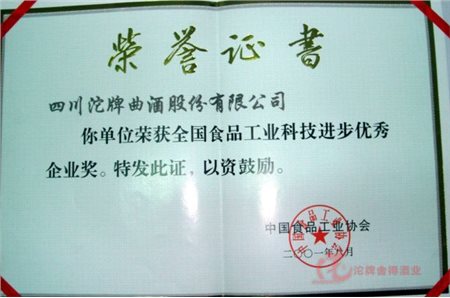 荣誉证书
四川沱牌曲酒股份有限公司
你单位荣获全国食品工业科技进步优秀
企业奖。特发此证，以资鼓励。
中国食品工业协会
中国食品工业协会
二〇〇一年八月
沱牌舍得酒业